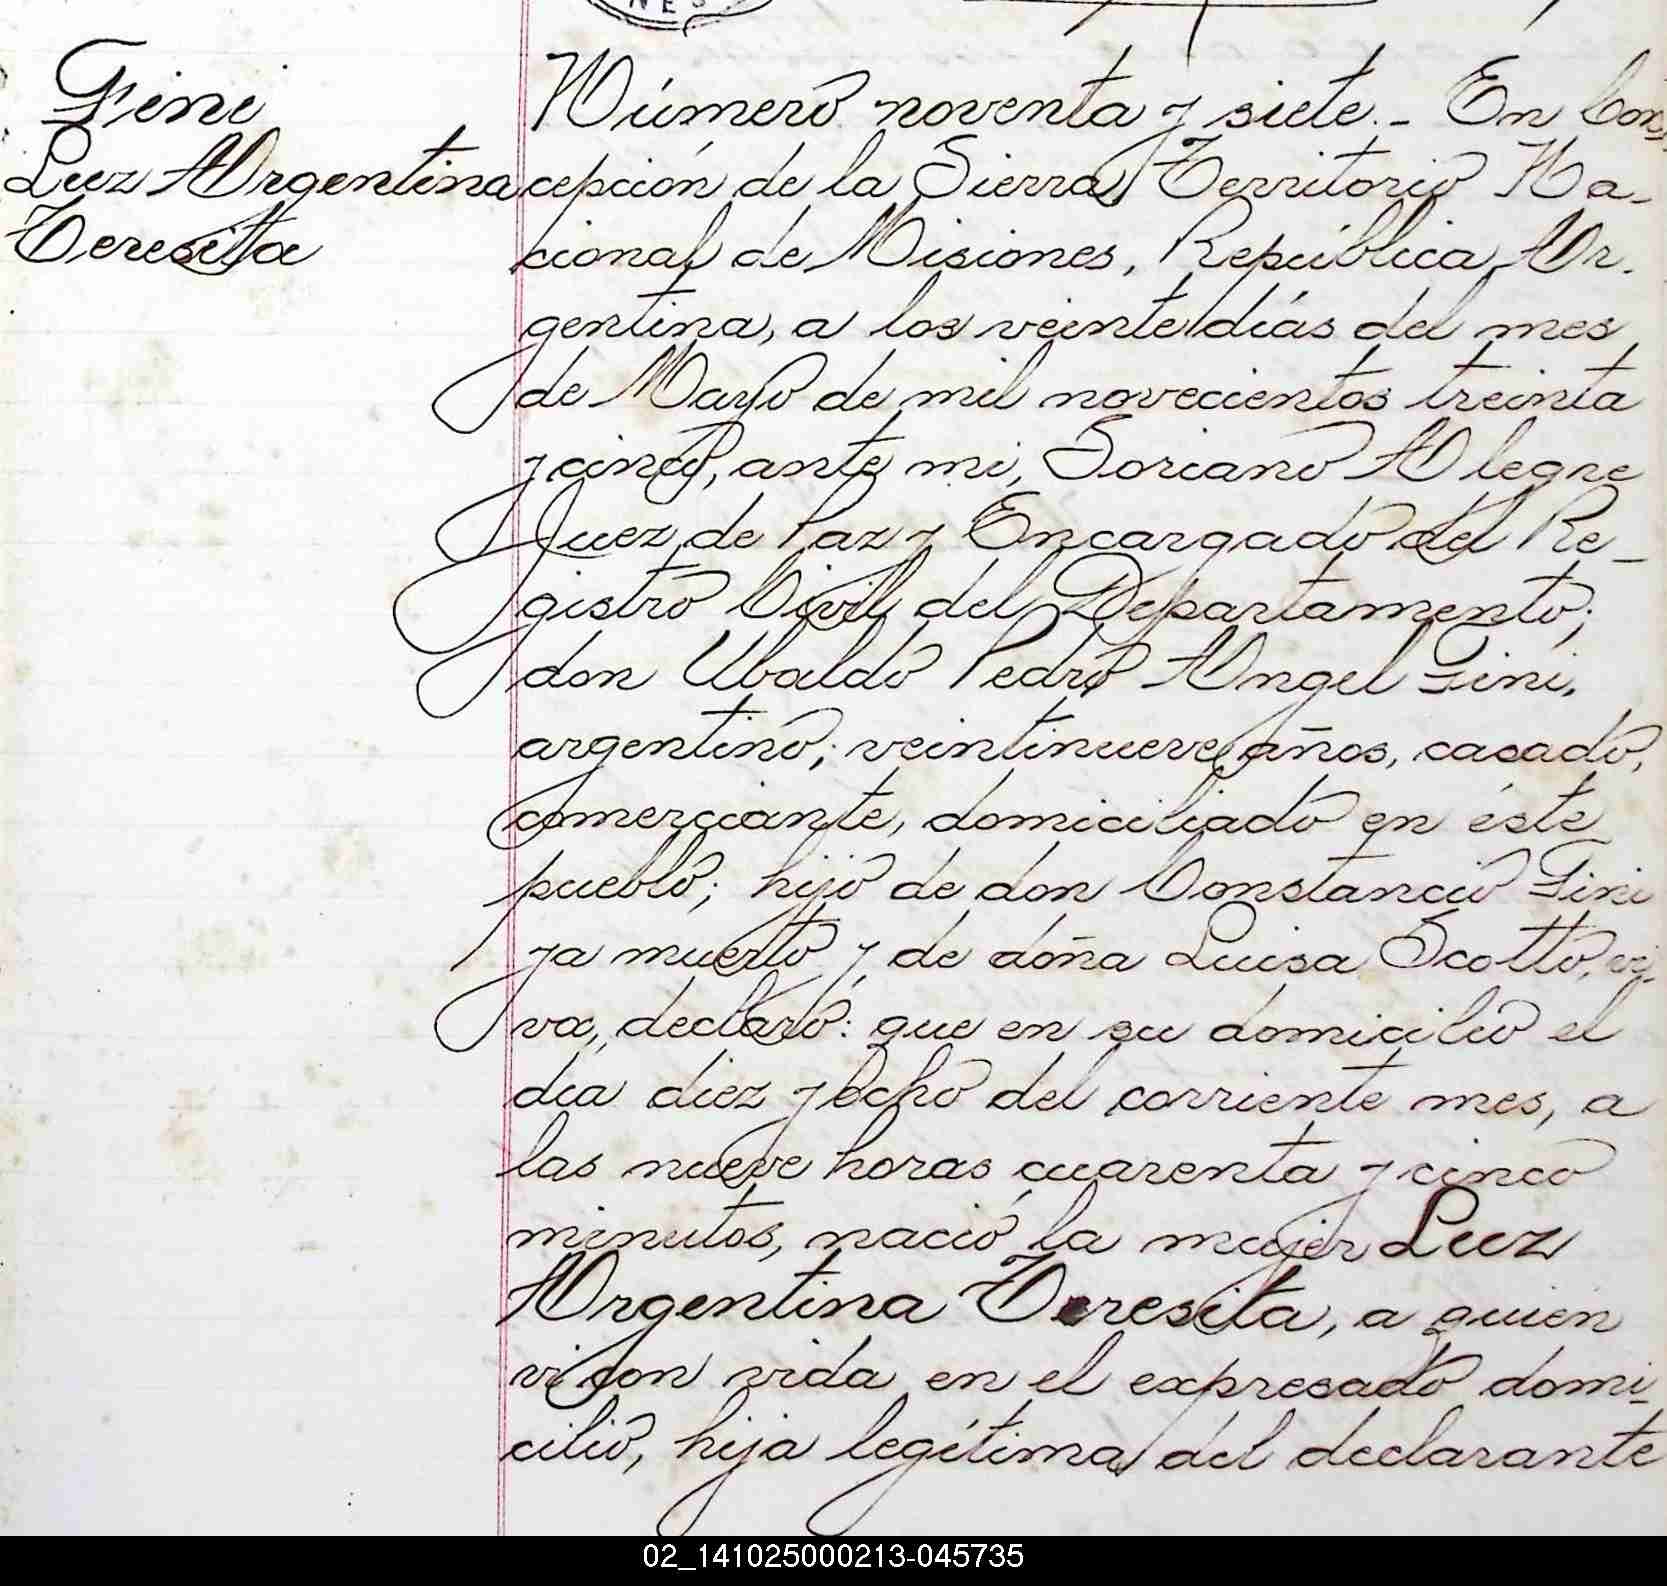 NES
Fini
Luz Argentina
Teresita
Número noventa y siete._ En Con-
cepción de la Sierra, Territorio Na-
cional de Misiones, República Ar-
gentina, a los veinte días del mes
de Mayo de mil novecientos treinta
y cinco, ante mi, Soriano Alegre
Juez de Paz y Encargado del Re-
gistro Civil del Departamento;
don Ubaldo Pedro Angel Fini,
argentino; veintinueve años, casado,
comerciante, domiciliado en éste
pueblo; hijo de don Constancio Fini
ya muerto y de doña Luisa Scotto, vi-
va, declaró: que en su domicilio el
día diez y ocho del corriente mes, a
las nueve horas cuarenta y cinco
minutos, nació la mujer Luz
Argentina Teresita, a quien
vi con vida en el expresado domi-
cilio, hija legítima del declarante
02_141025000213-045735